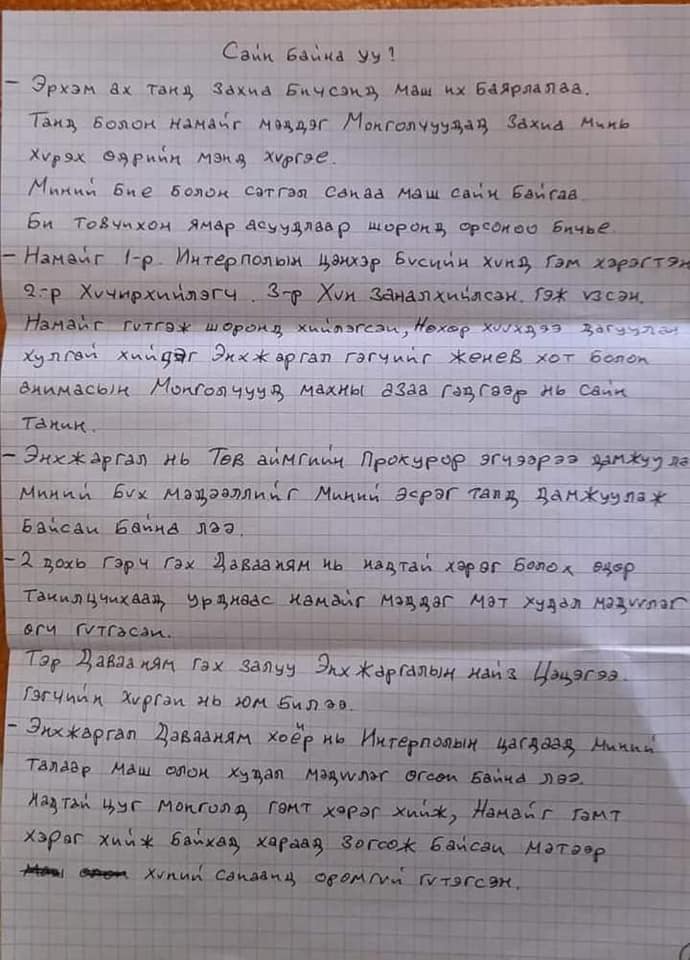 Сайн байна уу!
- Эрхэм ах танд захиа бичсэнд маш их баярлалаа.
Танд болон намайг мэддэг Монголчуудад захиа минь
хүрэх өдрийн мэнд хүргэе.
Миний бие болон сэтгэл санаа маш сайн байгаа.
Би товчихон ямар асуудлаар шоронд орсоноо бичье.
- Намайг 1-р. Интерполын цэнхэр бүсийн хүнд гэм хэрэгтэн
2-р Хүчирхийлэгч. 3-р Хүн заналхийлсэн. гэж үзсэн.
Намайг гүтгэж шоронд хийлгэсэн, Нөхөр хүүхдээ дагуулан
хулгай хийдэг Энхжаргал гэгчийг женев хот болон
анимасын Монголчууд махны азаа гэдгээр нь сайн
танин.
- Энхжаргал нь Төв аймгийн Прокурор эгчээрээ дамжуула
миний бүх мэдээллийг миний эсрэг талд дамжуулаж
байсан байна лээ.
- 2 дохь гэрч гэх Даваaням нь надтай хэрэг болох өдөр
танилцчихаад урднаас намайг мэддэг мэт худал мэдүүлэг
өгч гүтгэсэн.
Тэр Даваaням гэх залуу Энхжаргалын найз Цэцэгээ
гэгчийн хүргэн нь юм билээ.
- Энхжаргал Даваaням хоёр нь Интерполын цагдаад миний
талаар маш олон худал мэдүүлэг өгсөн байна лээ.
Надтай цуг монголд гэмт хэрэг хийж, Намайг гэмт
хэрэг хийж байхад хараад зогсож байсан мэтээр
хүний санаанд оромгүй гүтэгсэн.